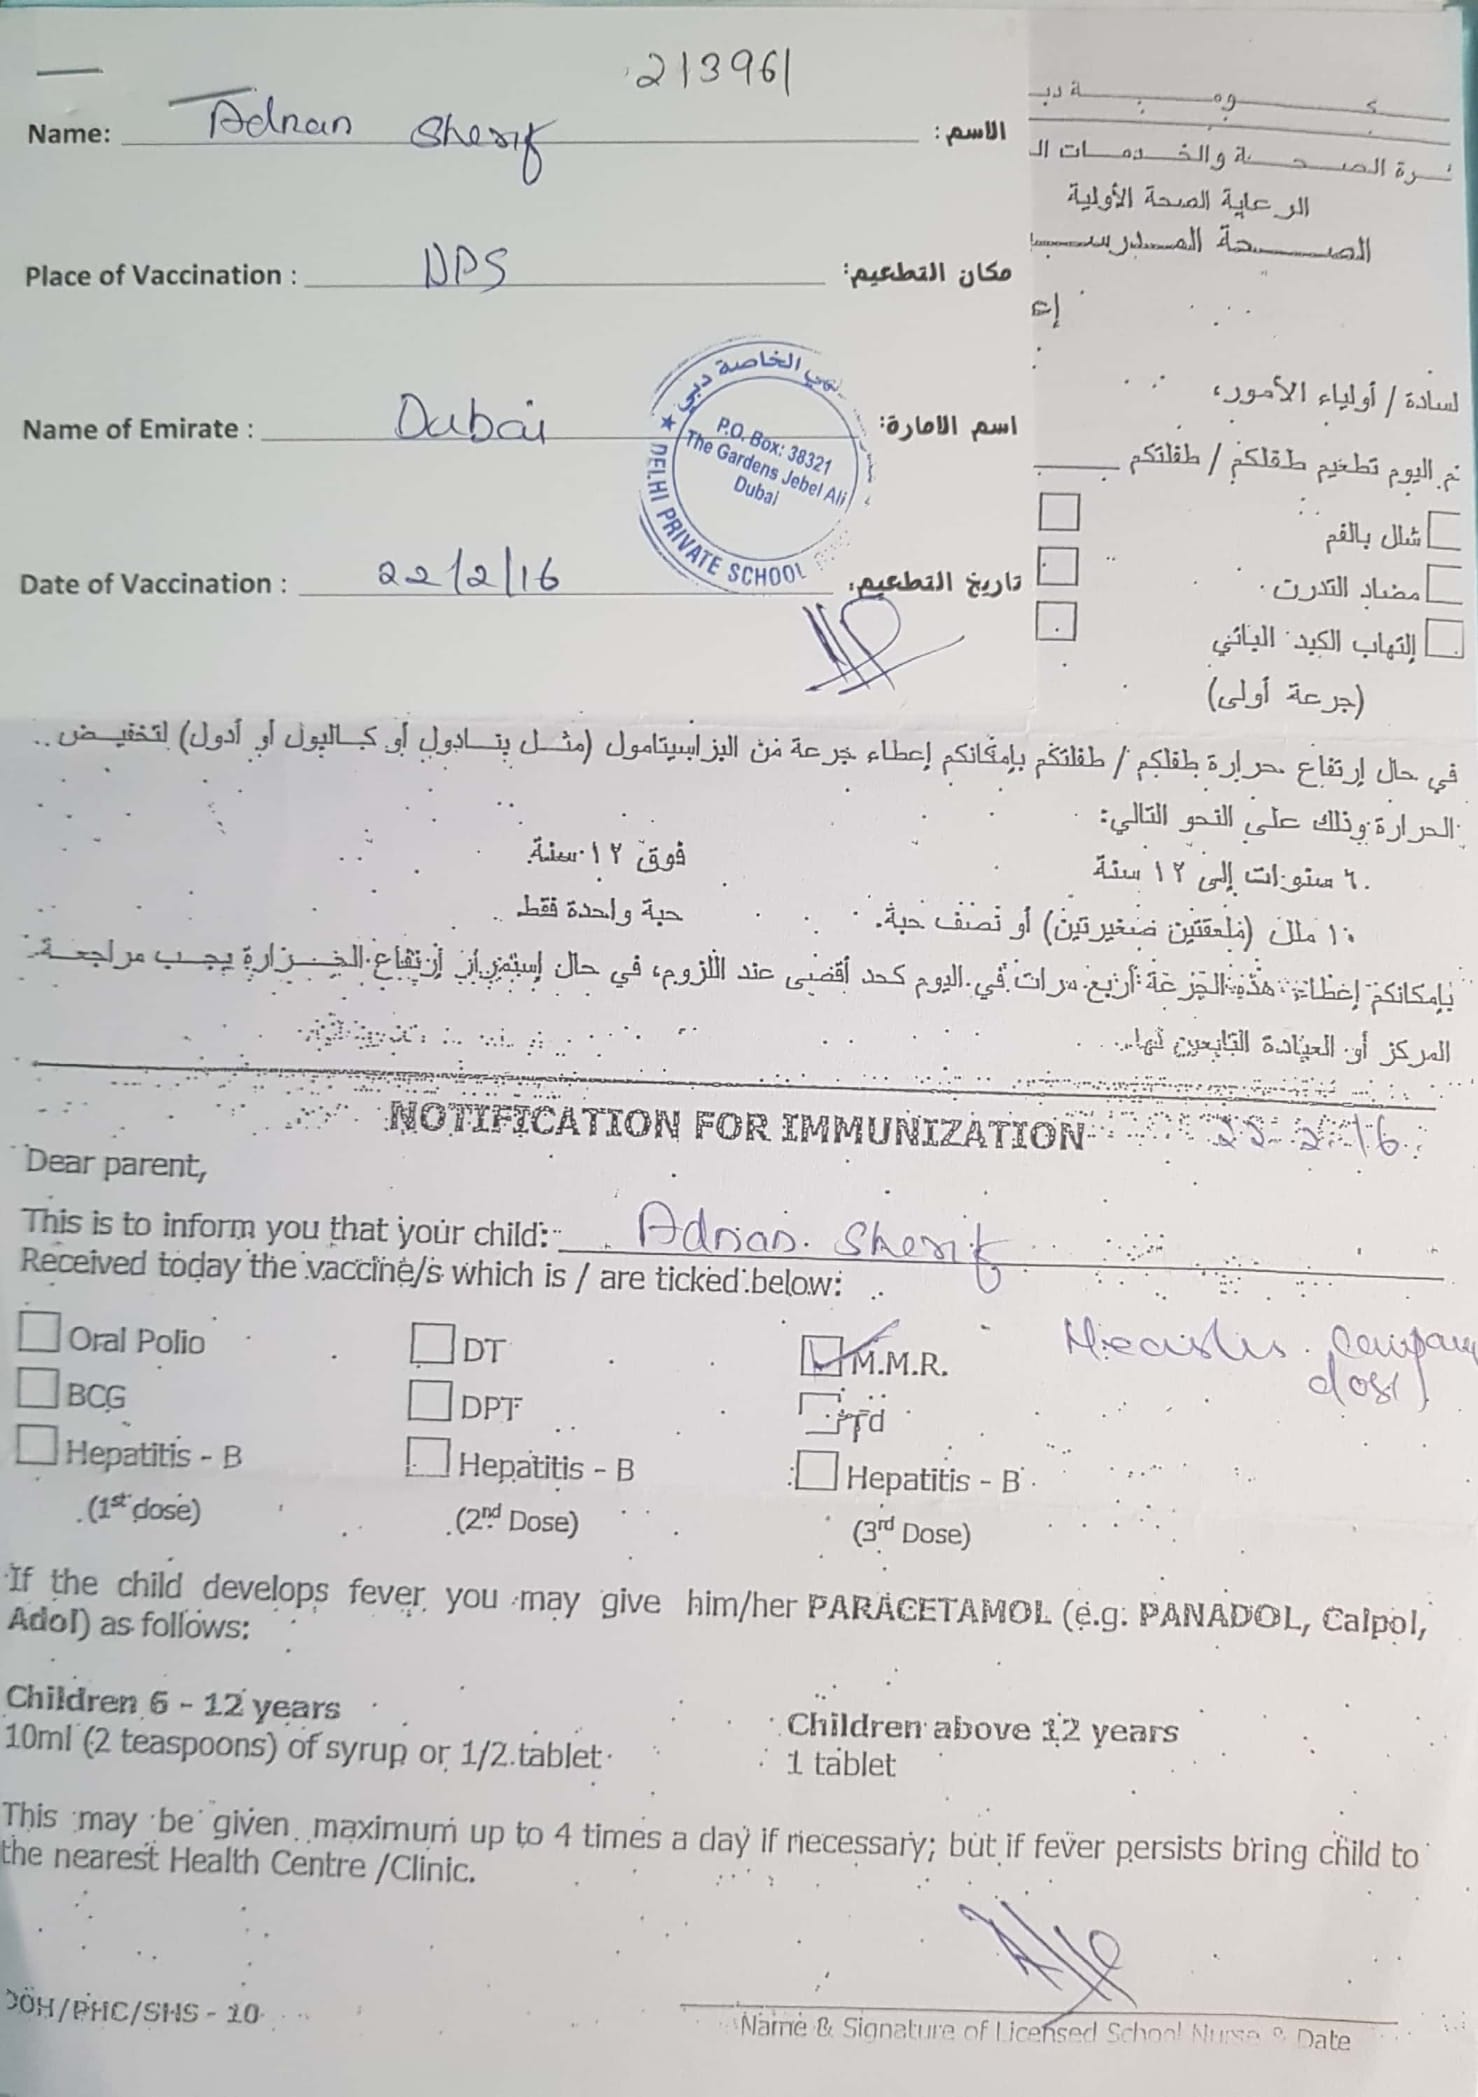 213961
Name: Adnan Sherif الاسم :
Place of Vaccination : DPS مكان التطعيم:
Name of Emirate : Dubai اسم الامارة:
الخاصة دبي
P.O. Box: 38321
The Gardens Jebel Ali
Dubai
★ DELHI PRIVATE SCHOOL
Date of Vaccination : 22/2/16 تاريخ التطعيم
الصحة والخدمات
الرعاية الصحة الأولية
الصحة
لسادة / أولياء الأمور،
اليوم تطعيم طفلكم / طفلتكم
شلل بالفم
مضاد التدرن
إلتهاب الكبد البائي
(جرعة أولى)
في حال إرتفاع حرارة طفلكم / طفلتكم بإمكانكم إعطاء جرعة من البراسيتامول (مثل بنادول أو كالبول أو أدول) لتخفيض
الحرارة وذلك على النحو التالي:
٦ سنوات إلى ١٢ سنة فوق ١٢ سنة
١٠ ملل (ملعقتين صغيرتين) أو نصف حبة. حبة واحدة فقط
بإمكانكم إعطاء هذه الجرعة أربع مرات في اليوم كحد أقصى عند اللزوم، في حال إستمرار إرتفاع الحرارة يجب مراجعة
المركز أو العيادة التابعين لها.
NOTIFICATION FOR IMMUNIZATION 22-2-16
Dear parent,
This is to inform you that your child: Adnan Sherif
Received today the vaccine/s which is / are ticked below:
Oral Polio DT M.M.R. dose)
BCG DPT Td
Hepatitis - B Hepatitis - B Hepatitis - B
(1st dose) (2nd Dose) (3rd Dose)
If the child develops fever you may give him/her PARACETAMOL (e.g. PANADOL, Calpol,
Adol) as follows:
Children 6 - 12 years Children above 12 years
10ml (2 teaspoons) of syrup or 1/2 tablet 1 tablet
This may be given maximum up to 4 times a day if necessary; but if fever persists bring child to
the nearest Health Centre /Clinic.
DOH/PHC/SHS - 10
Name & Signature of Licensed School Nurse & Date